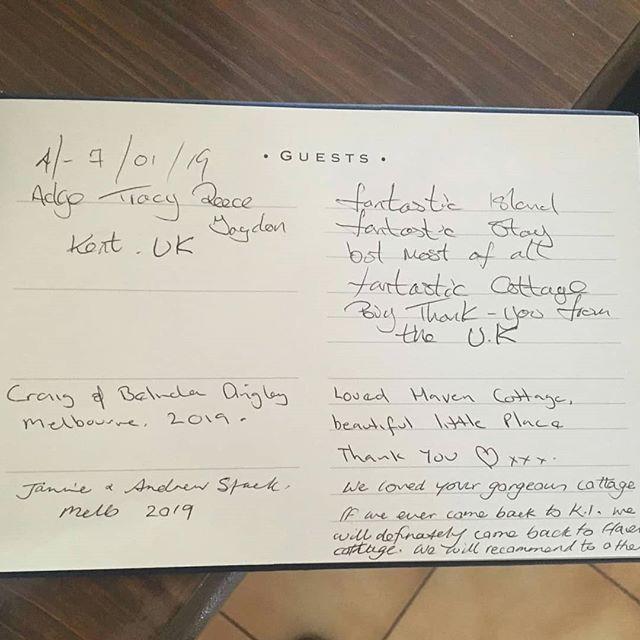 • GUESTS •
4/- 7/01/19
Adge Tracy Reece
Jaydon
Kent. UK
fantastic Island
fantastic Stay
bst Most of all
fantastic Cottage
Big Thank-you from
the U.K
Craig & Belinda
Melbourne, 2019.
Loved Haven Cottage,
beautiful little Place
Thank You ♡ xxx.
& Andrew Stack.
Melb 2019
We loved your gorgeous cottage
If we ever come back to K.I. we
will definately come back to Haven
cottage. We will recommend to othe